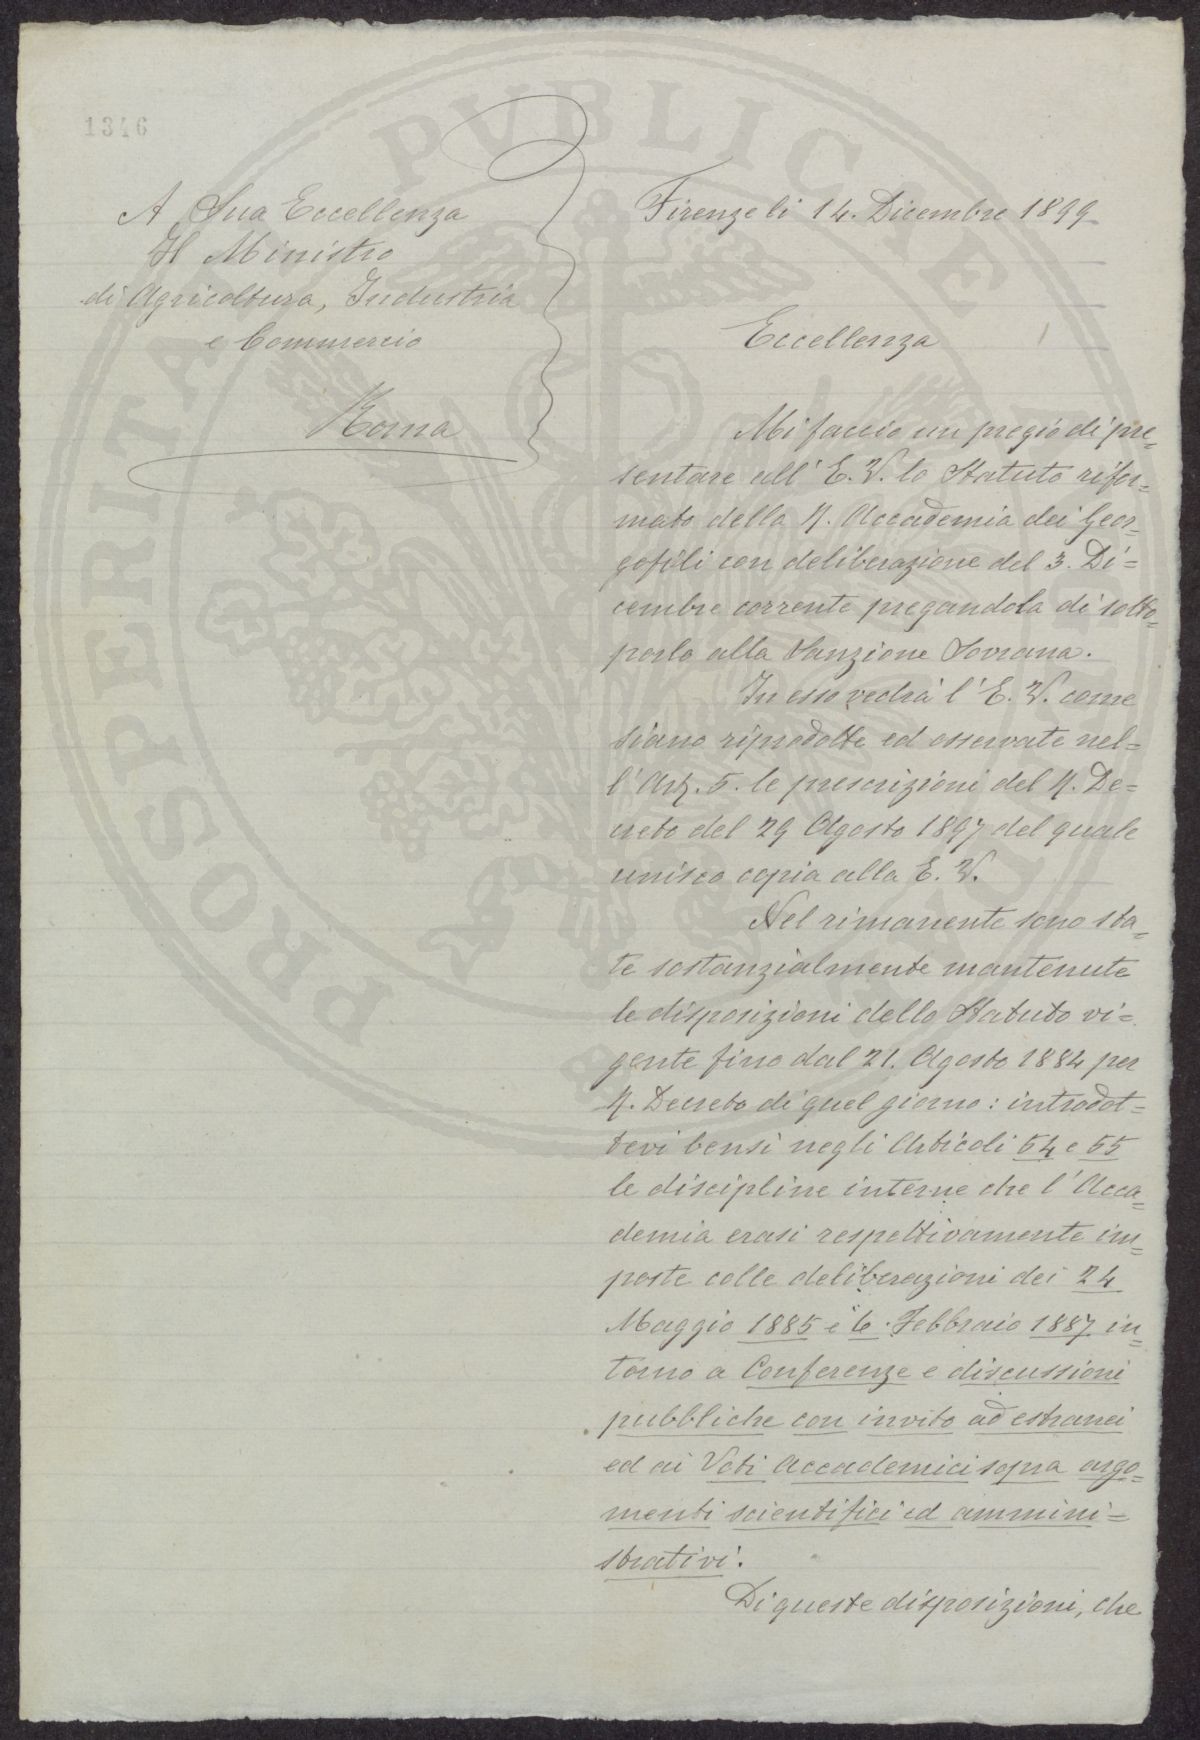 1346
A Sua Eccellenza
Il Ministro
di Agricoltura, Industria
e Commercio
Roma
Firenze li 14. Dicembre 1899
Eccellenza
Mi faccio un pregio di pre=
sentare all' E. V. lo Statuto rifor=
mato della R. Accademia dei Geor=
gofili con deliberazione del 3. Di=
cembre corrente pregandola di sotto=
porlo alla Sanzione Sovrana.
In esso vedrà l' E. V. come
siano riprodotte ed osservate nel=
l' Art. 5. le prescrizioni del R. De=
creto del 29 Agosto 1897 del quale
unisco copia alla E. V.
Nel rimanente sono sta=
te sostanzialmente mantenute
le disposizioni dello Statuto vi=
gente fino dal 21. Agosto 1884 per
R. Decreto di quel giorno: introdot=
tevi bensì negli Articoli 54 e 55
le discipline interne che l' Acca=
demia erasi respettivamente im=
poste colle deliberazioni dei 24
Maggio 1885 e 6. Febbraio 1887 in=
torno a Conferenze e discussioni
pubbliche con invito ad estranei
ed ai Voti Accademici sopra argo=
menti scientifici ed ammini=
strativi.
Di queste disposizioni, che
PROSPERITATI PVBLICAE AVGENDAE